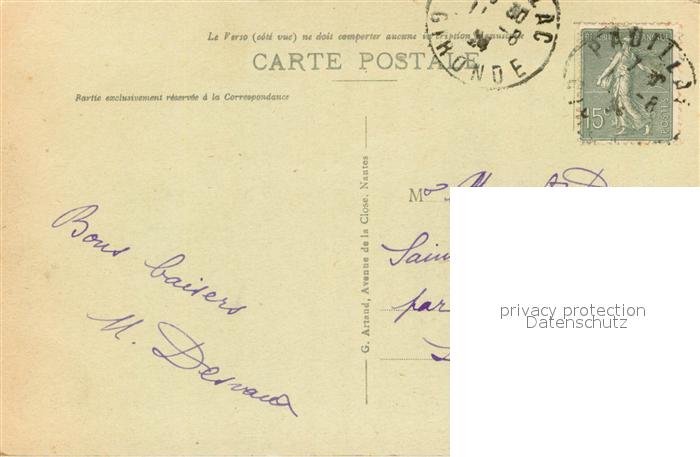 Le Verso (côté vue) ne doit comporter aucune inscription manuscrite
CARTE POSTALE
PAUILLAC
GIRONDE
15c
POSTES
Partie exclusivement réservée à la Correspondance
G. Artaud, Avenue de la Close, Nantes
Bons baisers
M. Desvaux
M
Sain
par
privacy protection
Datenschutz